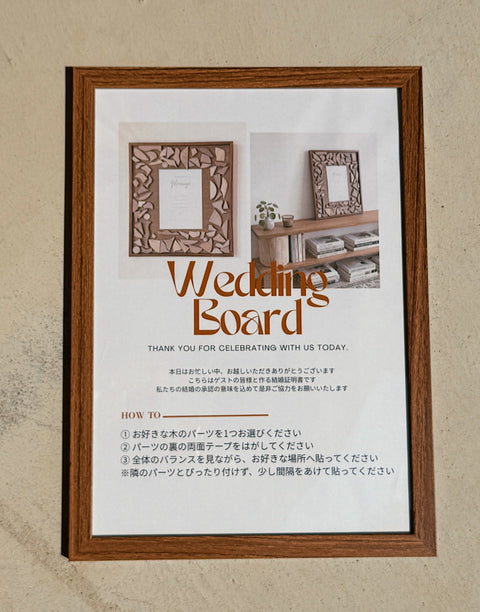 Wedding
Board
THANK YOU FOR CELEBRATING WITH US TODAY.
本日はお忙しい中、お越しいただきありがとうございます
こちらはゲストの皆様と作る結婚証明書です
私たちの結婚の承認の意味を込めて是非ご協力をお願いいたします
HOW TO
① お好きな木のパーツを1つお選びください
② パーツの裏の両面テープをはがしてください
③ 全体のバランスを見ながら、お好きな場所へ貼ってください
※隣のパーツとぴったり付けず、少し間隔をあけて貼ってください